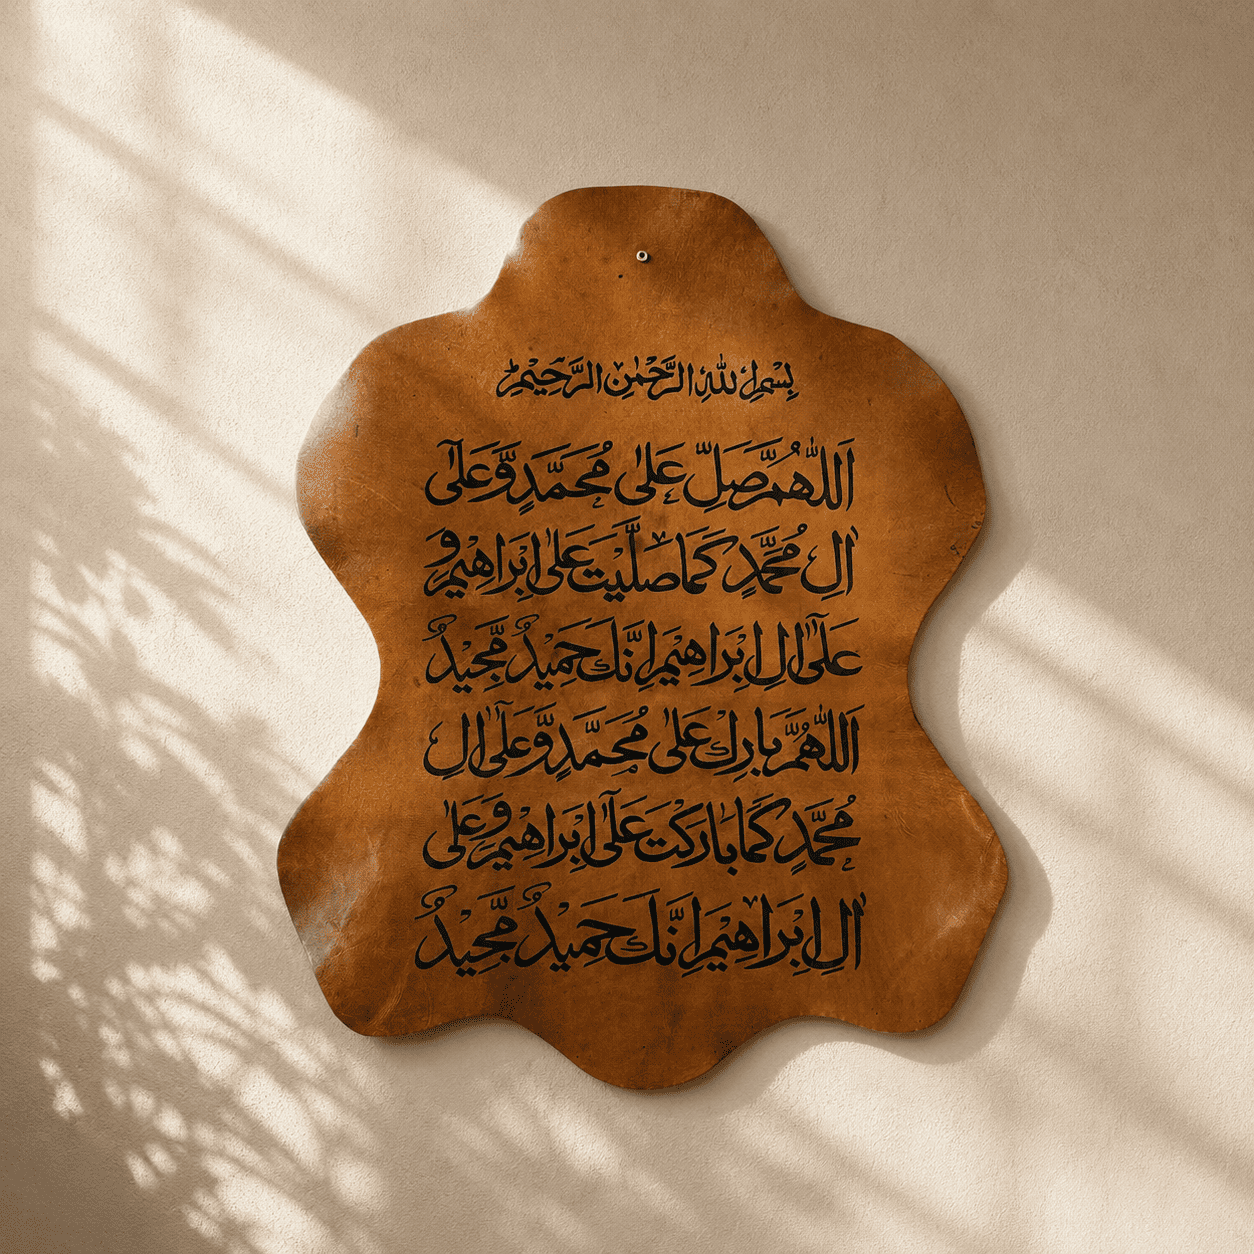 بِسْمِ اللهِ الرَّحْمٰنِ الرَّحِيْمِ
اَللّٰهُمَّ صَلِّ عَلٰى مُحَمَّدٍ وَّعَلٰٓى
اٰلِ مُحَمَّدٍ كَمَا صَلَّيْتَ عَلٰٓى اِبْرَاهِيْمَ وَ
عَلٰٓى اٰلِ اِبْرَاهِيْمَ اِنَّكَ حَمِيْدٌ مَّجِيْدٌ
اَللّٰهُمَّ بَارِكْ عَلٰى مُحَمَّدٍ وَّعَلٰٓى اٰلِ
مُحَمَّدٍ كَمَا بَارَكْتَ عَلٰٓى اِبْرَاهِيْمَ وَعَلٰٓى
اٰلِ اِبْرَاهِيْمَ اِنَّكَ حَمِيْدٌ مَّجِيْدٌ